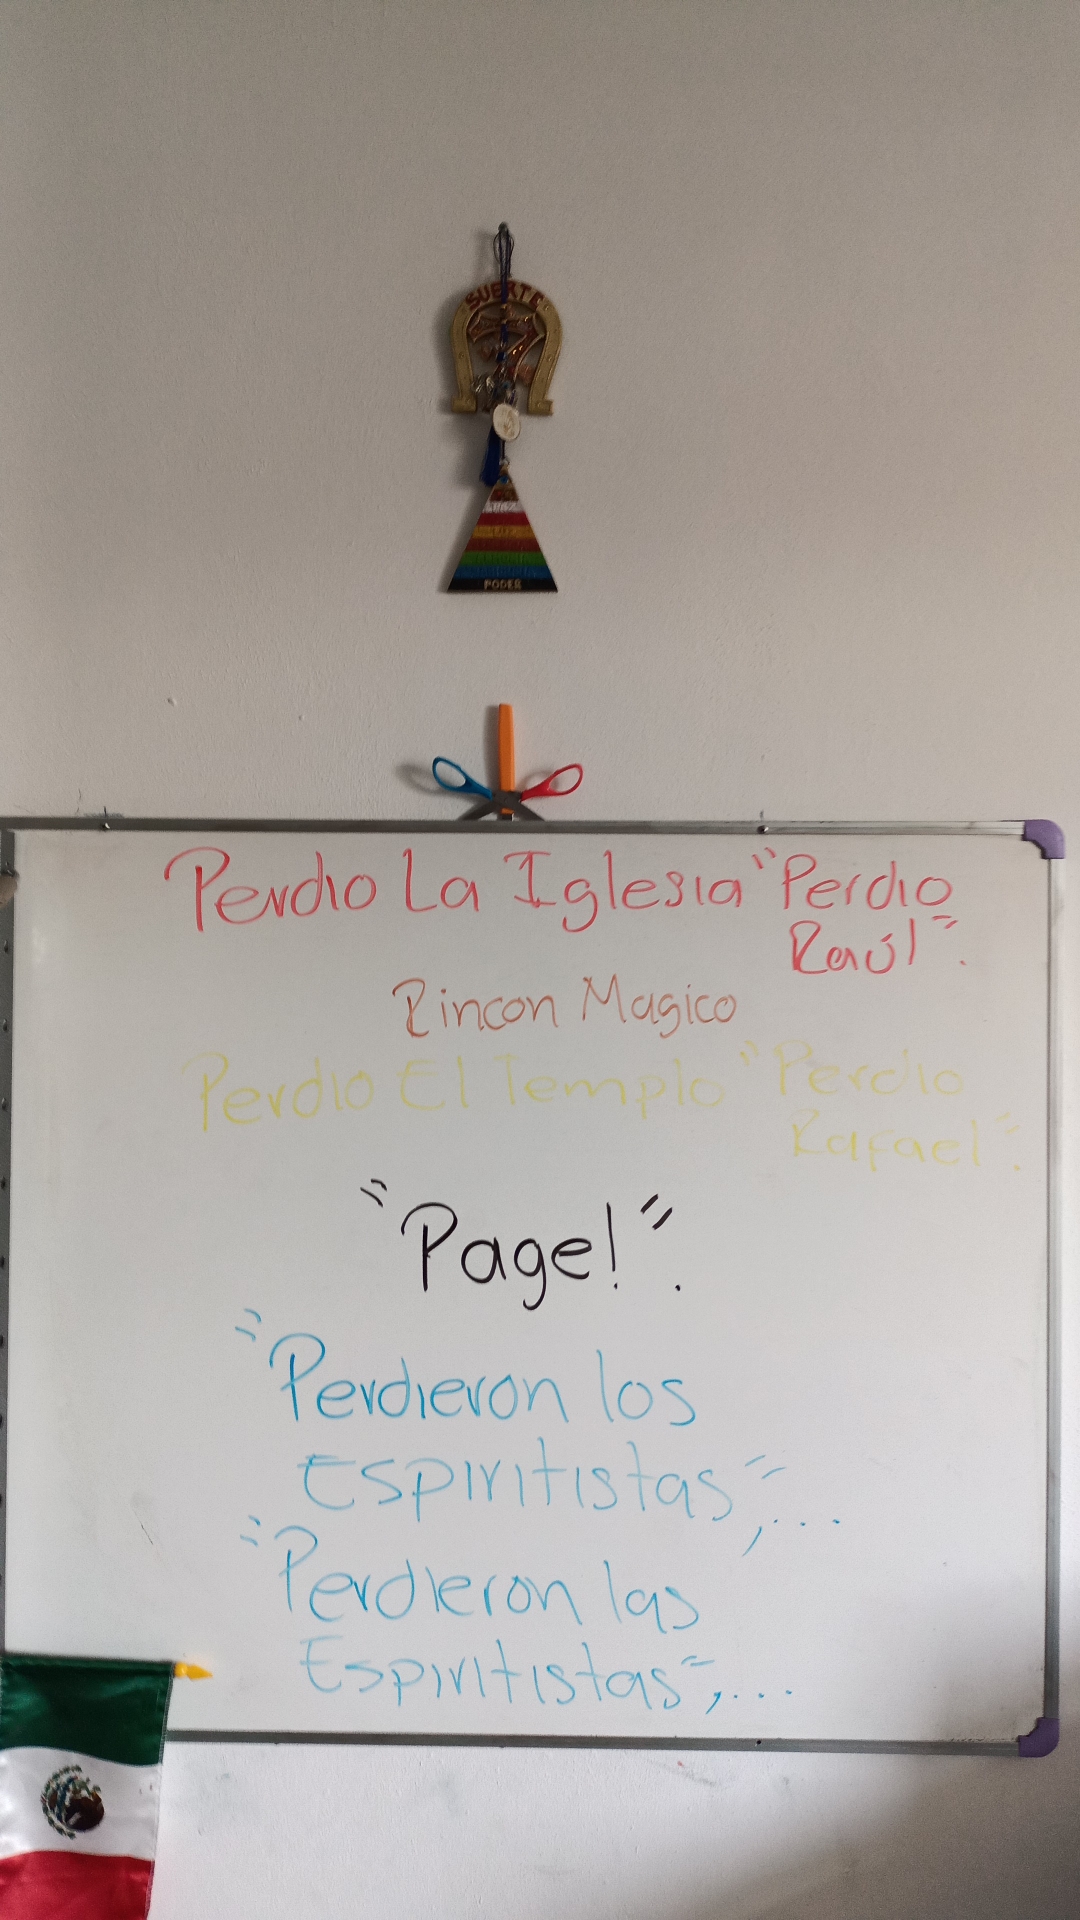 SUERTE
PODER
Perdio La Iglesia "Perdio
Raúl".
Rincon Magico
Perdio El Templo "Perdio
Rafael".
"Page!".
"Perdieron los
Espiritistas",...
"Perdieron las
Espiritistas",...